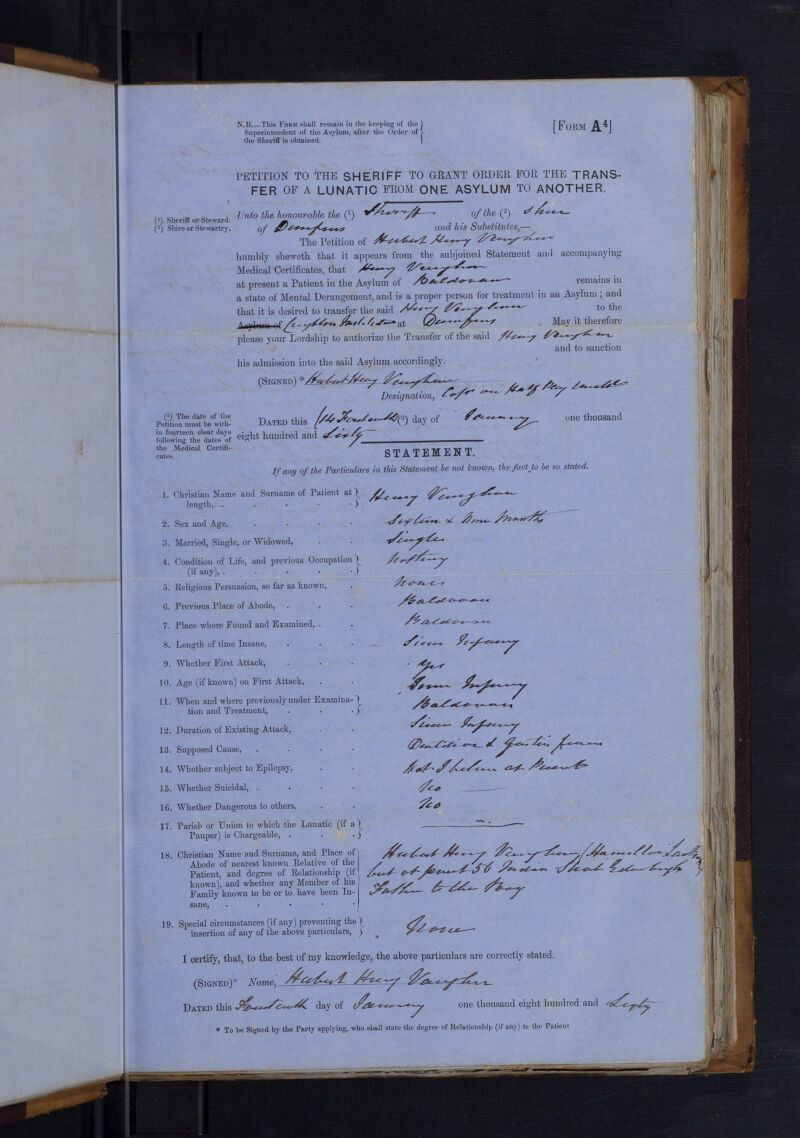 N.B.—This Form shall remain in the keeping of the
Superintendent of the Asylum, after the Order of
the Sheriff is obtained.
[Form A4]
PETITION TO THE SHERIFF TO GRANT ORDER FOR THE TRANS-
FER OF A LUNATIC FROM ONE ASYLUM TO ANOTHER.
(1) Sheriff or Steward.
(2) Shire or Stewartry.
Unto the honourable the (1) Sheriff of the (2) Shire
of Dumfries and his Substitutes,—
The Petition of Herbert Henry Vaughan
humbly sheweth that it appears from the subjoined Statement and accompanying
Medical Certificates, that Henry Vaughan
at present a Patient in the Asylum of Baldovan remains in
a state of Mental Derangement, and is a proper person for treatment in an Asylum; and
that it is desired to transfer the said Henry Vaughan to the
Asylum of Crighton Institution at Dumfries . May it therefore
please your Lordship to authorize the Transfer of the said Henry Vaughan
and to sanction
his admission into the said Asylum accordingly.
(Signed) * Herbert Henry Vaughan
Designation, Capt on Half Pay
(3) The date of the
Petition must be with-
in fourteen clear days
following the dates of
the Medical Certifi-
cates.
Dated this (14 Fourteenth (3) day of January one thousand
eight hundred and Sixty
STATEMENT.
If any of the Particulars in this Statement be not known, the fact to be so stated.
1. Christian Name and Surname of Patient at
length, . Henry Vaughan
2. Sex and Age, Sixteen & Nine Months
3. Married, Single, or Widowed, Single
4. Condition of Life, and previous Occupation
(if any), . Nothing
5. Religious Persuasion, so far as known, None
6. Previous Place of Abode, . Baldovan
7. Place where Found and Examined, . Baldovan
8. Length of time Insane, Since Infancy
9. Whether First Attack, Yes
10. Age (if known) on First Attack, From Infancy
11. When and where previously under Examina-
tion and Treatment, Baldovan
12. Duration of Existing Attack, Since Infancy
13. Supposed Cause, . Dentition & Gastric fever
14. Whether subject to Epilepsy, Not I believe at Present
15. Whether Suicidal, . No
16. Whether Dangerous to others, No
17. Parish or Union to which the Lunatic (if a
Pauper) is Chargeable, .
18. Christian Name and Surname, and Place of
Abode of nearest known Relative of the
Patient, and degree of Relationship (if
known), and whether any Member of his
Family known to be or to have been In-
sane, .
Herbert Henry Vaughan
but at present 56 India Street Edinburgh
Father to the Boy
19. Special circumstances (if any) preventing the
insertion of any of the above particulars, None
I certify, that, to the best of my knowledge, the above particulars are correctly stated.
(Signed)* Name, Herbert Henry Vaughan
Dated this Fourteenth day of January one thousand eight hundred and Sixty
* To be Signed by the Party applying, who shall state the degree of Relationship (if any) to the Patient